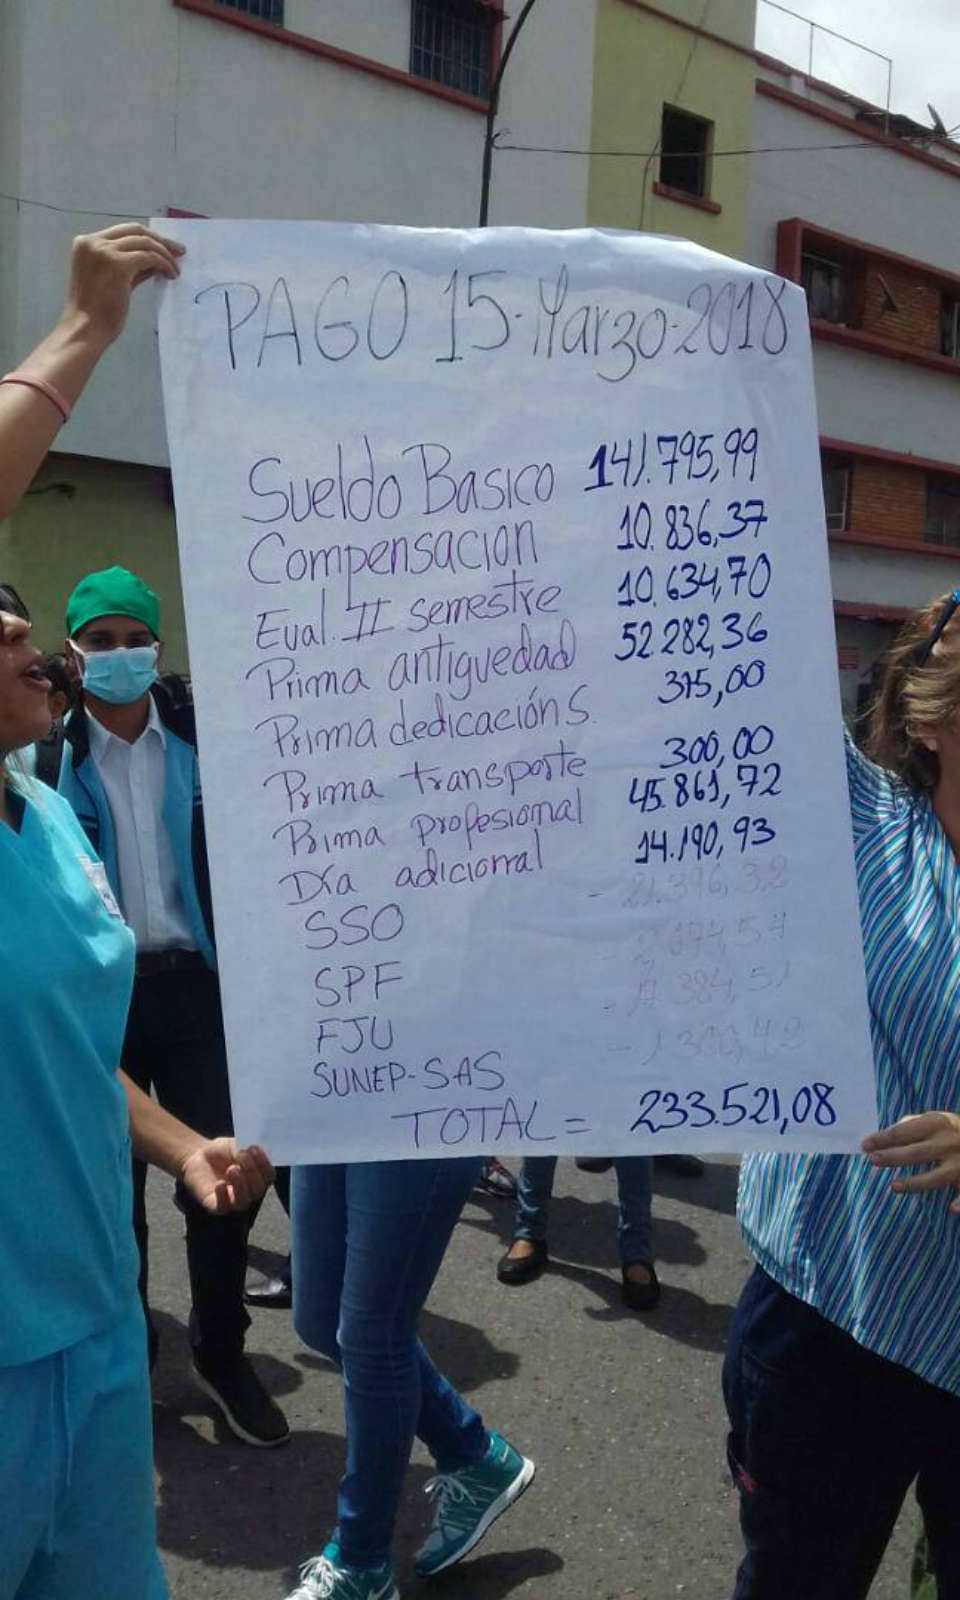 PAGO 15-Marzo-2018
Sueldo Basico 141.795,99
Compensacion 10.836,37
Eval. II semestre 10.634,70
Prima antiguedad 52.282,36
Prima dedicación S. 375,00
Prima transporte 300,00
Prima profesional 45.861,72
Día adicional 14.190,93
SSO
SPF
FJU
SUNEP-SAS
TOTAL = 233.521,08